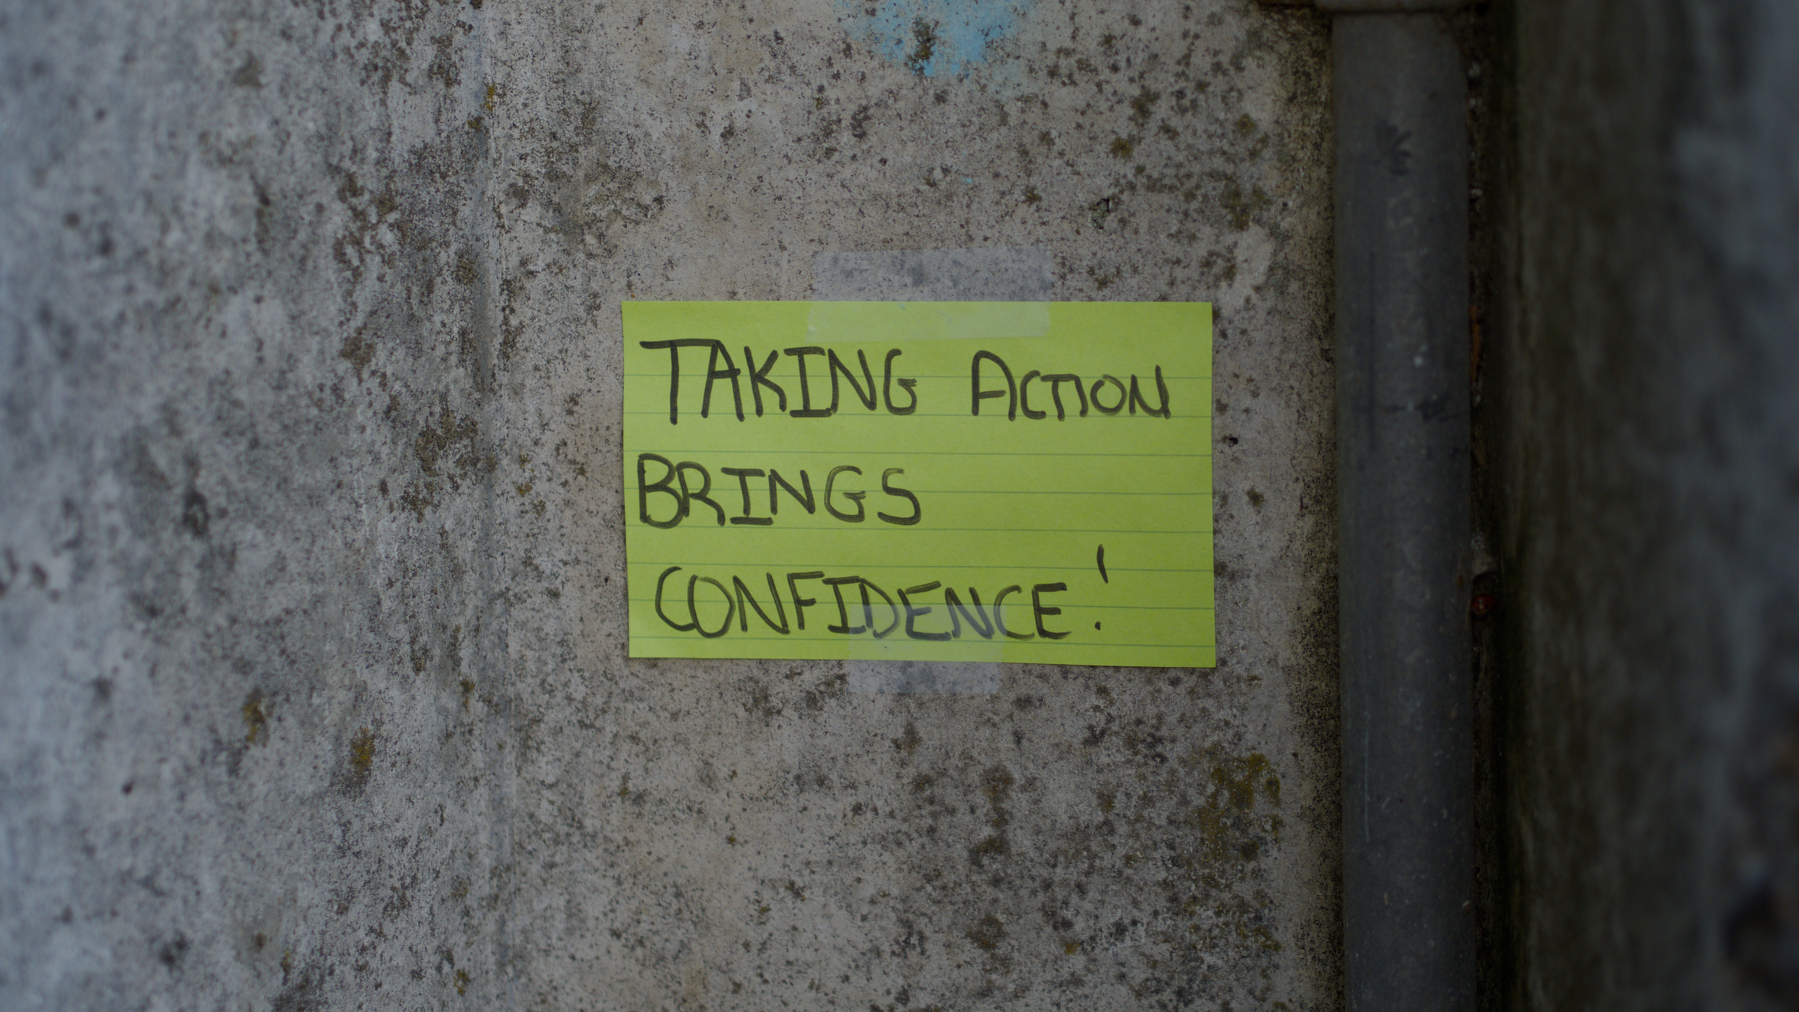 TAKING ACTION
BRINGS
CONFIDENCE!